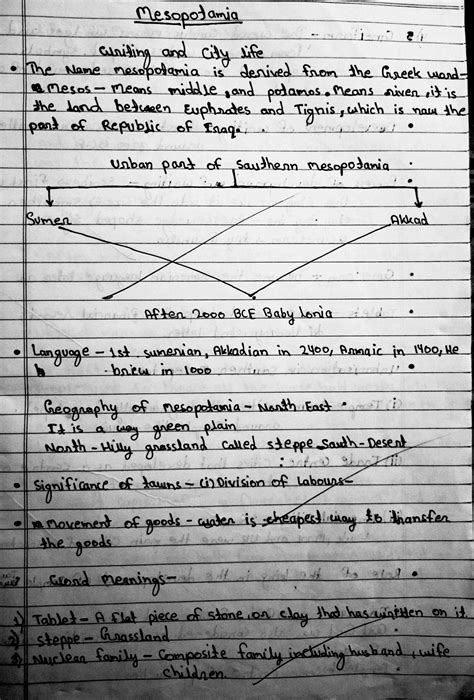 Mesopotamia
Writing and City life
• The Name mesopotamia is derived from the Greek word-
Mesos - Means middle, and potamos, Means river, it is
the land between Euphrates and Tignis, which is now the
part of Republic of Iraq.
Urban part of southern mesopotamia
Sumer
Akkad
After 2000 BCE Babylonia
• Language - 1st sumerian, Akkadian in 2400, Armaic in 1400, He
brew in 1000
Geography of mesopotamia - North East
It is a way green plain
North - Hilly grassland called steppe South - Desert
• Significance of towns - (i) Division of Labours -
• Movement of goods - water is cheapest way to transfer
the goods
Word Meanings -
1) Tablet - A flat piece of stone, or clay that has written on it.
2) Steppe - Grassland
3) Nuclear family - Composite family including husband, wife
children.